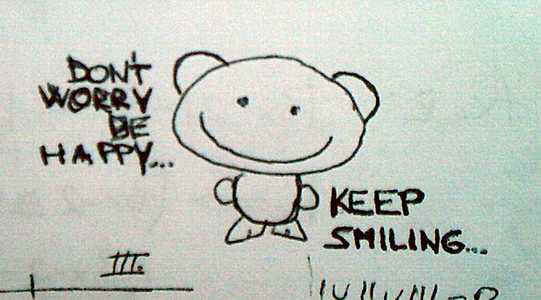 DON'T
WORRY
BE
HAPPY...
KEEP
SMILING...
III.